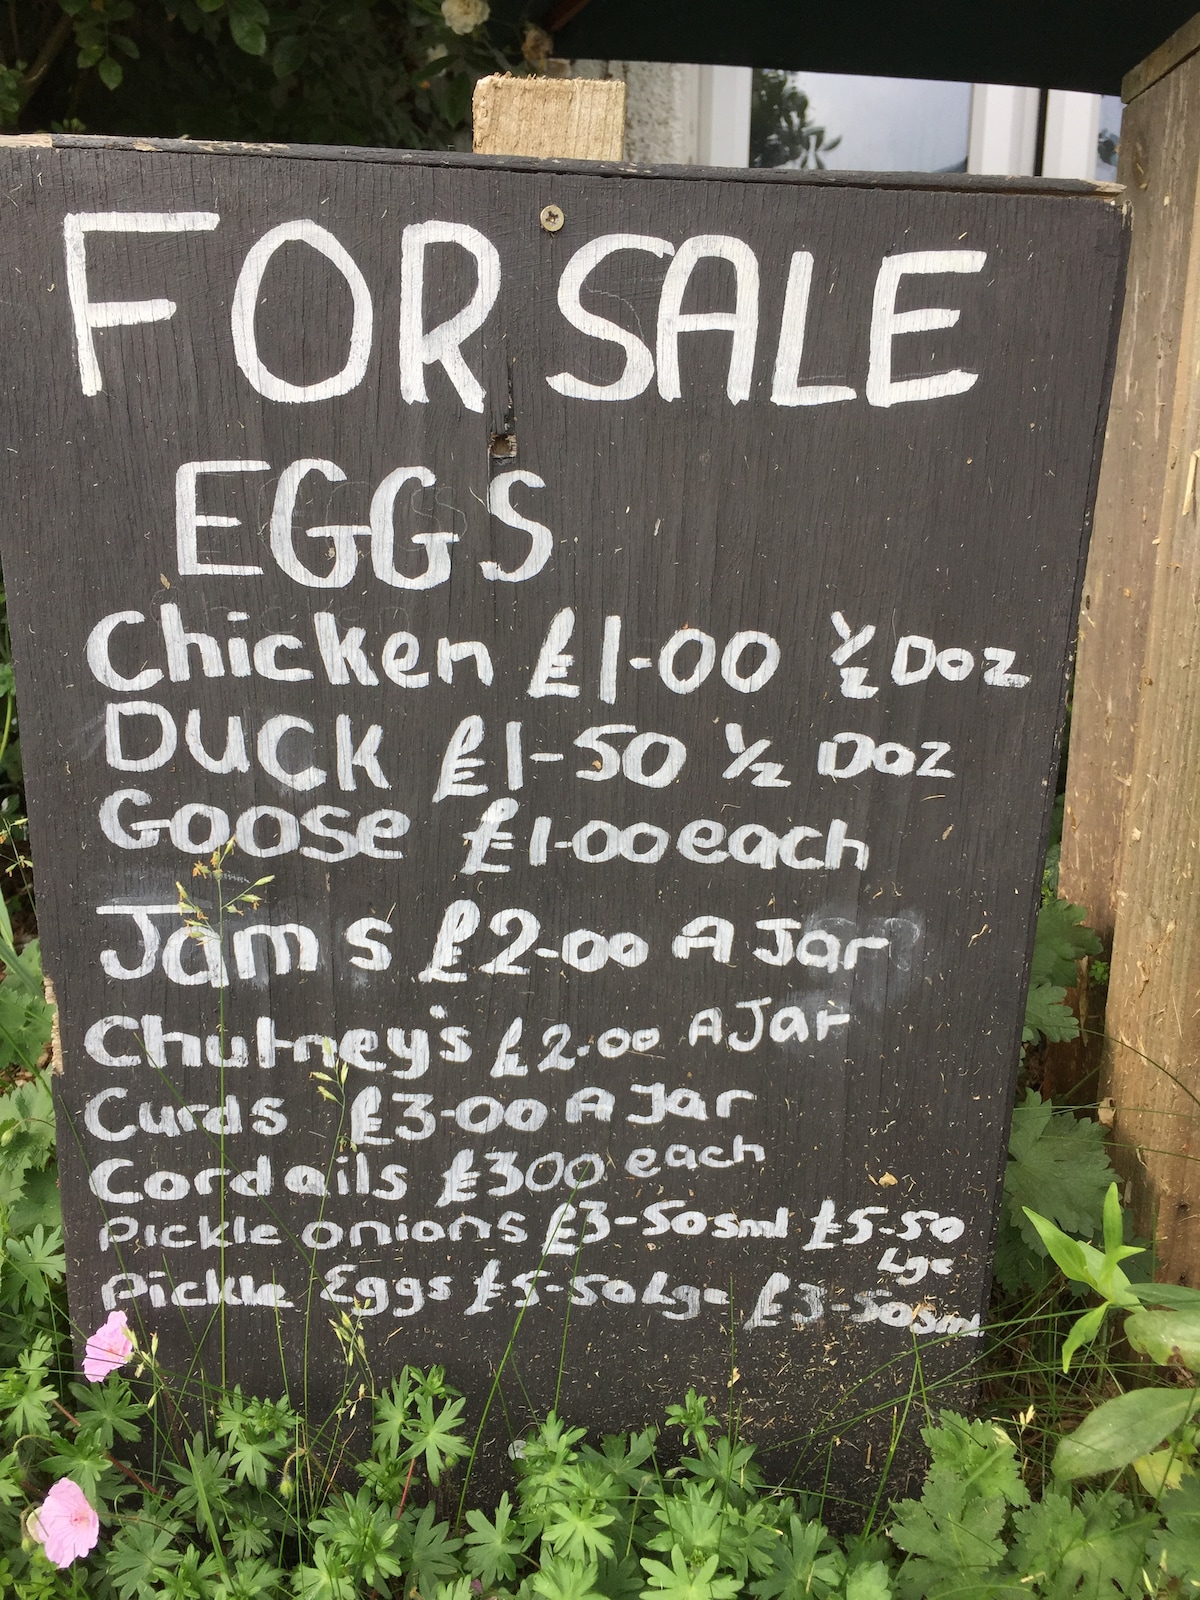 FOR SALE
EGGS
Chicken £1-00 ½ Doz
Duck £1-50 ½ Doz
Goose £1-00 each
Jams £2-00 A Jar
Chutney's £2-00 A Jar
Curds £3-00 A Jar
Cordails £300 each
Pickle onions £3-50sml £5-50 Lge
Pickle Eggs £5-50Lge £3-50sml